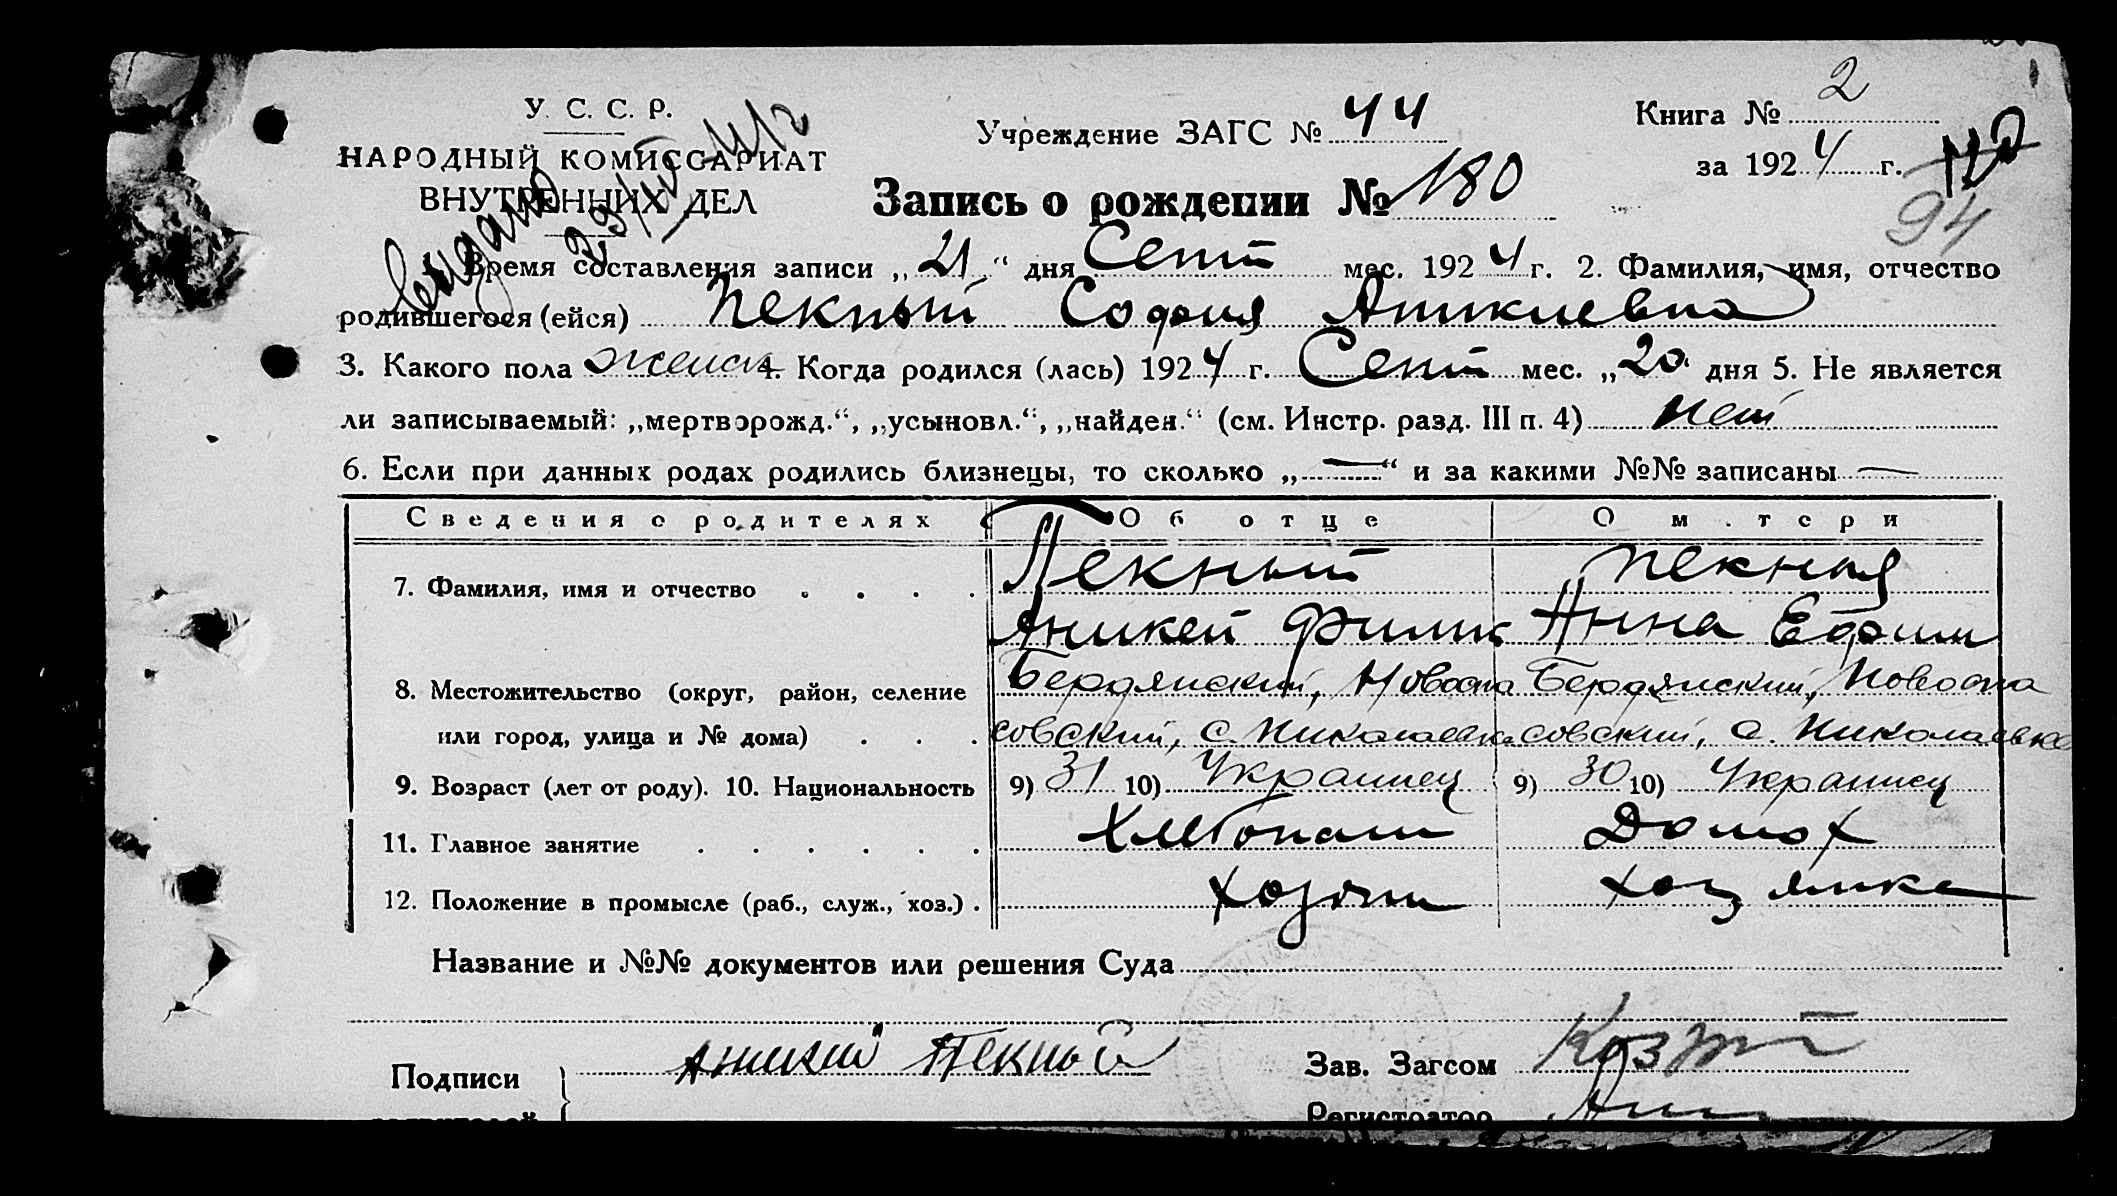 У. С. С. Р.
НАРОДНЫЙ КОМИССАРИАТ
ВНУТРЕННИХ ДЕЛ
Учреждение ЗАГС № 44
Книга № 2
за 1924 г.
94
Запись о рождении № 180
1. Время составления записи „21“ дня Сент мес. 1924 г. 2. Фамилия, имя, отчество
родившегося (ейся) Пекный София Аникиевна
3. Какого пола женск 4. Когда родился (лась) 1924 г. Сент мес. „20“ дня 5. Не является
ли записываемый: „мертворожд.“, „усыновл.“, „найден.“ (см. Инстр. разд. III п. 4) нет
6. Если при данных родах родились близнецы, то сколько „—“ и за какими №№ записаны —
Сведения о родителях Об отце О матери
7. Фамилия, имя и отчество . . . . Пекный Пекная
Аникей Филип Анна Ефим
8. Местожительство (округ, район, селение Бердянский, Новоспа Бердянский, Новоспа
или город, улица и № дома) . . . совский, с. Николаевка совский, с. Николаевка
9. Возраст (лет от роду). 10. Национальность 9) 31 10) Украинец 9) 30 10) Украинец
11. Главное занятие . . . . . . Хлебопаш Домох
12. Положение в промысле (раб., служ., хоз.) . хозяин хозяйка
Название и №№ документов или решения Суда
Подписи Аникий Пекный Зав. Загсом
родителей Регистратор